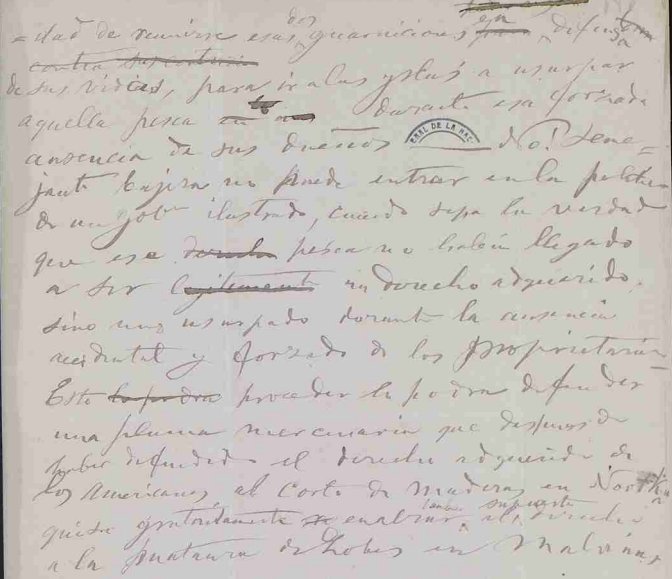 =dad de reunirse esas dos guarniciones en defensa
contra
de sus vidas, para ir a las yslas a usurpar
aquella pesca durante esa forzada
ausencia de sus dueños No! Seme=
jante bajeza no puede entrar en la política
de un gob.no ilustrado, cuando sepa la verdad
que esa derecho pesca no había llegado
a ser legítimamente un derecho adquirido,
sino uno usurpado durante la ausencia
accidental y forzada de los propietarios
Este la podra proceder lo podra defender
una pluma mercenaria que despues de
haber defendido el derecho adquirido de
los Americanos al Corte de Maderas en
quiere gratuitamente enalzar el supuesto derecho
a la matanza de Lobos en Malvinas